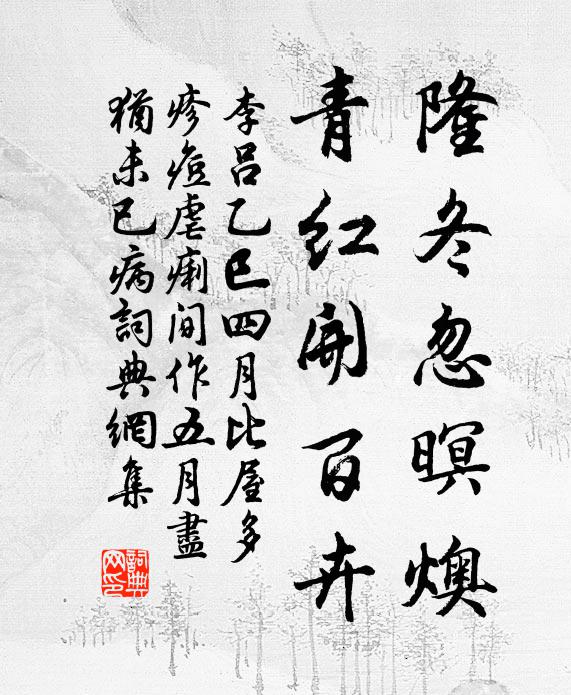 隆冬忽暝燠
青红開百卉
李吕乙巳四月比屋多
疹痘虐痢间作五月盡
猶未已病詞典網集
詞典
网印